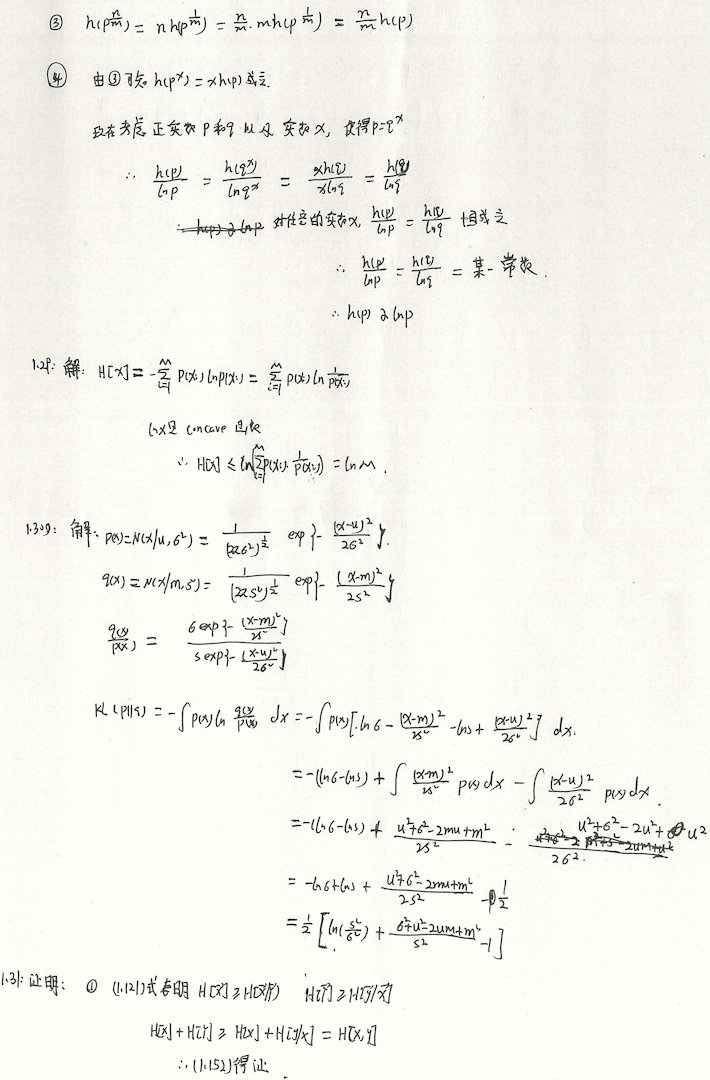 ③ h(p^{n/m}) = nh(p^{1/m}) = n/m · mh(p^{1/m}) = n/m h(p)
④ 由③可知 h(p^x) = xh(p) 成立
现在考虑 正实数 P和q 以及 实数 x, 使得 p=q^x
∴ h(p)/lnp = h(q^x)/lnq^x = xh(q)/xlnq = h(q)/lnq
对任意的实数x, h(p)/lnp = h(q)/lnq 恒成立
∴ h(p)/lnp = h(q)/lnq = 某一常数.
∴ h(p) ∂ lnp
1.29: 解: H[X] = -∑_{i=1}^{M} P(xi) lnP(xi) = ∑_{i=1}^{M} P(xi) ln 1/P(xi)
lnx是 concave 函数
∴ H[X] ≤ ln(∑_{i=1}^{M} P(xi) · 1/P(xi)) = lnM.
1.30: 解: P(x)=N(x/u,б²) = 1/(2πб²)^{1/2} exp{-(x-u)²/2б²}.
q(x) = N(x/m,s²) = 1/(2πs²)^{1/2} exp{-(x-m)²/2s²}
q(x)/p(x) = б exp{-(x-m)²/2s²} / s exp{-(x-u)²/2б²}
KL(p||q) = -∫p(x) ln q(x)/p(x) dx = -∫p(x)[lnб - (x-m)²/2s² - lns + (x-u)²/2б²] dx.
= -(lnб-lns) + ∫ (x-m)²/2s² p(x)dx - ∫ (x-u)²/2б² p(x)dx.
= -(lnб-lns) + (u²+б²-2mu+m²)/2s² - (u²+б²-2u²+u²)/2б².
= -lnб+lns + (u²+б²-2mu+m²)/2s² - 1/2
= 1/2 [ln(s²/б²) + (б²+u²-2um+m²)/s² - 1]
1.31: 证明: ① (1.121)式表明 H[X] ≥ H[X/Y] H[Y] ≥ H[Y/X]
H[X] + H[Y] ≥ H[X] + H[Y/X] = H[X,Y]
∴ (1.152) 得证.